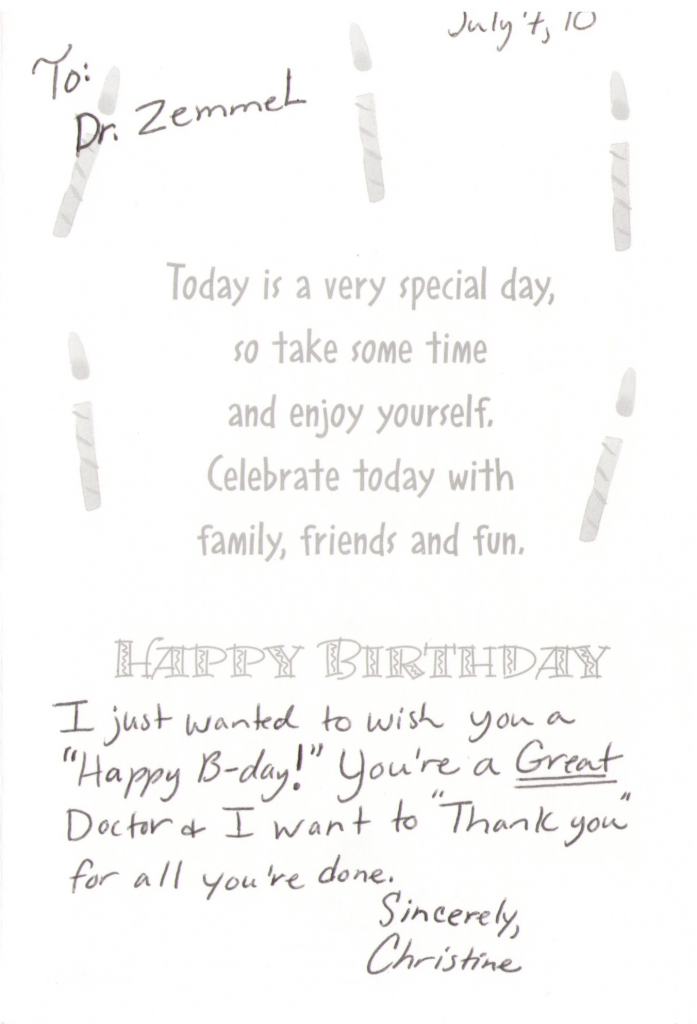 July 4, 10
To:
Dr. Zemmel
Today is a very special day,
so take some time
and enjoy yourself.
Celebrate today with
family, friends and fun.
HAPPY BIRTHDAY
I just wanted to wish you a
"Happy B-day!" You're a Great
Doctor & I want to "Thank you"
for all you're done.
Sincerely,
Christine